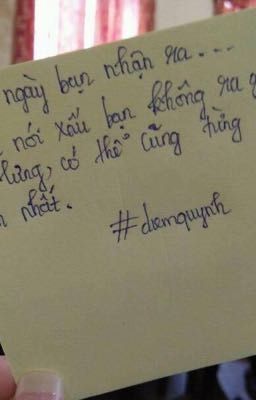 ngày bạn nhận ra....
nói xấu bạn không ra g
lưng, có thể cũng từng
nhất.
#diemquynh